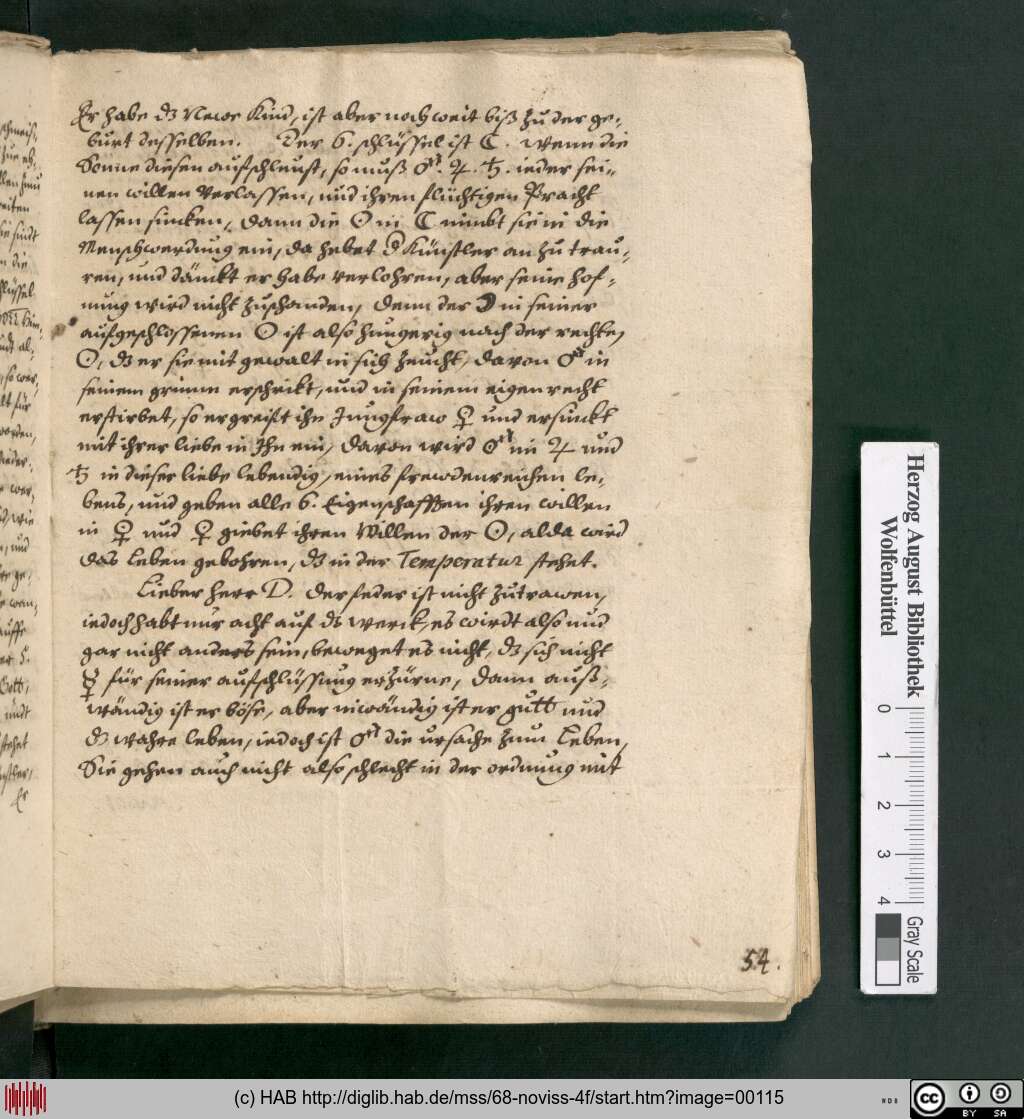 Er habe dz Newe Kind, ist aber noch weit biß zu der ge-
burt desselben. Der 6. schlüssel ist ☾. Wenn die
Sonne diesen aufschleust, so muß ♂. ♃. ♄. ieder sei-
nen willen verlassen, und ihren flüchtigen Pracht
lassen sincken, dann die ☉ in ☾ nimbt sie in die
Menschwerdung ein, da hebet d Künstler an zu trau-
ren, und dänckt er habe verlohren, aber seine hof-
nung wird nicht zuschanden, denn der ☽ in seiner
aufgeschlossenen ☉ ist also hungerig nach der rechten
☉, dz er sie mit gewalt in sich zeucht, davon ♂ in
seinem grimm erschrikt, und in seinem eigen recht
erstirbet, so ergreift ihn Jungfraw ♀ und ersinckt
mit ihrer liebe in Ihn ein, davon wird ♂ im ♃ und
♄ in dieser liebe lebendig, eines frewdenreichen le-
bens, und geben alle 6. Eigenschafften ihren willen
in ♀ und ♀ giebet ihren Willen der ☉, alda wird
das Leben gebohren, dz in der Temperatur stehet.
Lieber Herr D. der feder ist nicht zu trawen,
iedoch habt nur acht auf ds werck, es wirdt also und
gar nicht anders sein, beweget es nicht, dz sich nicht
☿ für seiner aufschlüssung erzürne, dann auß-
wändig ist er böse, aber inwändig ist er gutt und
dz wahre leben, iedoch ist ♂ die ursache zum Leben,
Sie gehen auch nicht also schlecht in der ordnung mit
54.
Herzog August Bibliothek
Wolfenbüttel
0 1 2 3 4
Gray Scale
(c) HAB http://diglib.hab.de/mss/68-noviss-4f/start.htm?image=00115
cc BY SA